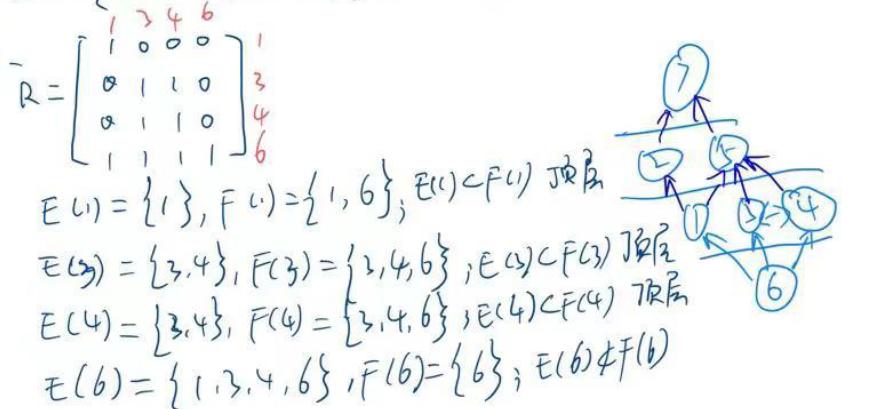 1 3 4 6
R̄ = [ 1 0 0 0 ] 1
0 1 1 0 3
0 1 1 0 4
1 1 1 1 6
E(1) = {1}, F(1) = {1, 6}; E(1)⊂F(1) 顶层
E(3) = {3,4}, F(3) = {3,4,6}; E(3)⊂F(3) 顶层
E(4) = {3,4}, F(4) = {3,4,6}; E(4)⊂F(4) 顶层
E(6) = {1,3,4,6}, F(6) = {6}; E(6)⊄F(6)
7
2 5
1 3 <-> 4
6